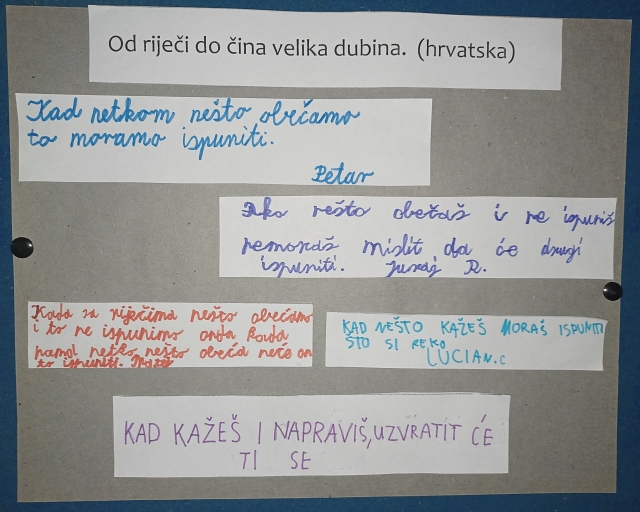 Od riječi do čina velika dubina. (hrvatska)
Kad netkom nešto obećamo
to moramo ispuniti.
Petar
Ako nešto obećaš i ne ispuniš
nemoraš mislit da će drugi
ispuniti. Juraj R.
Kada sa riječima nešto obećamo
i to ne ispunimo onda kada
nama netko nešto obeća neće on
to ispuniti.
KAD NEŠTO KAŽEŠ MORAŠ ISPUNITI
ŠTO SI REKO
LUCIAN.C
KAD KAŽEŠ I NAPRAVIŠ,UZVRATIT ĆE
TI SE